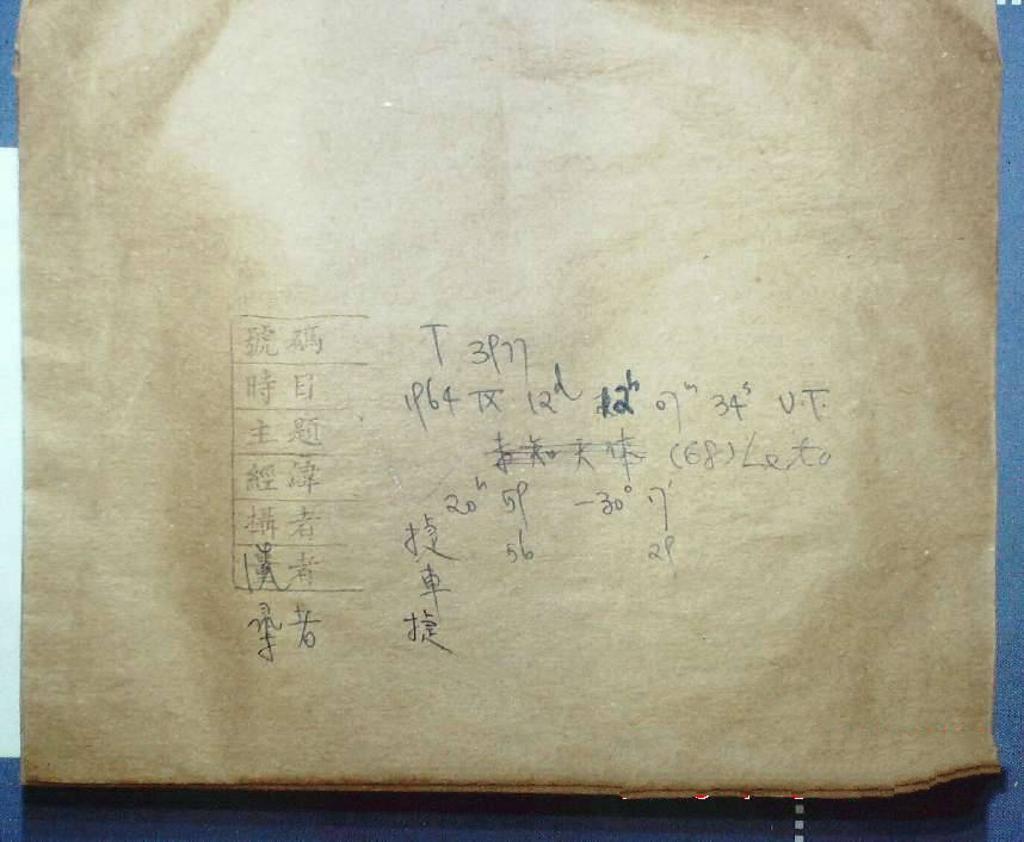 號碼 T 3977
時日 1964 IX 12d 12h 07m 34s U.T.
主題 未知天体 (68) Leto
經緯 20h 59 -30° 17'
攝者 捷 56 29
者 車
者 捷